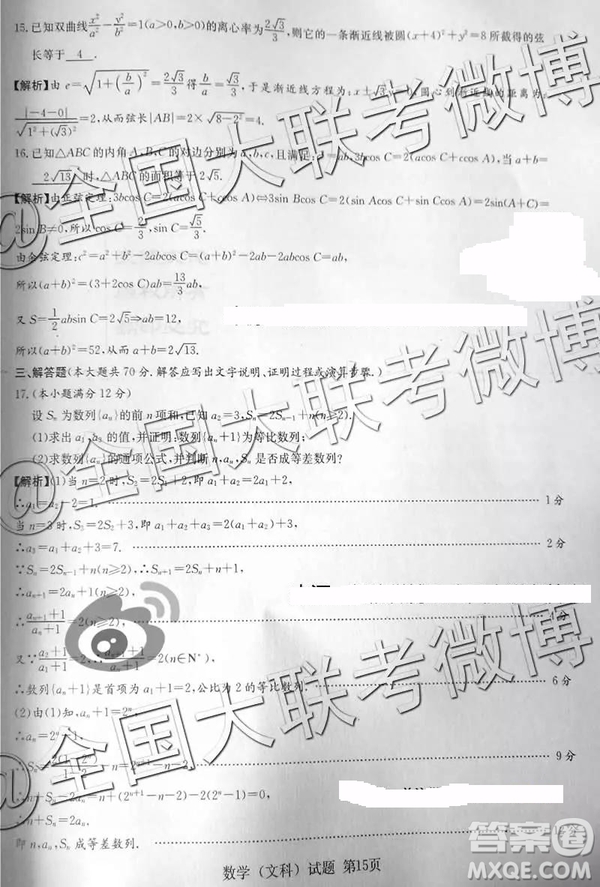 15.已知双曲线x²/a²-y²/b²=1(a>0,b>0)的离心率为2√3/3,则它的一条渐近线被圆(x+4)²+y²=8所截得的弦
长等于 4 .
【解析】由e=√(1+(b/a)²)=2√3/3得b/a=√3/3,于是渐近线方程为:x±√3y=0,圆心到渐近线的距离为:
|-4-0|/√(1²+(√3)²)=2,从而弦长|AB|=2×√(8-2²)=4.
16.已知△ABC的内角A,B,C的对边分别为a,b,c,且满足:3bcos C=2(acos C+ccos A),当a+b=
2√13时,△ABC的面积等于2√5.
【解析】由正弦定理:3bcos C=2(acos C+ccos A)⇔3sin Bcos C=2(sin Acos C+sin Ccos A)=2sin(A+C)=
2sin B≠0,所以cos C=2/3,sin C=√5/3.
由余弦定理:c²=a²+b²-2abcos C=(a+b)²-2ab-2abcos C=ab,
所以(a+b)²=(3+2cos C)ab=13/3 ab,
又S=1/2 absin C=2√5⇒ab=12,
所以(a+b)²=52,从而a+b=2√13.
三、解答题(本大题共70分.解答应写出文字说明、证明过程或演算步骤.)
17.(本小题满分12分)
设Sₙ为数列{aₙ}的前n项和,已知a₂=3,Sₙ=2Sₙ₋₁+n(n≥2).
(1)求出a₁,a₃的值,并证明:数列{aₙ+1}为等比数列;
(2)求数列{aₙ}的通项公式,并判断n,aₙ,Sₙ是否成等差数列?
【解析】(1)当n=2时,S₂=2S₁+2,即a₁+a₂=2a₁+2,
∴a₁=a₂-2=1, 1分
当n=3时,S₃=2S₂+3,即a₁+a₂+a₃=2(a₁+a₂)+3,
∴a₃=a₁+a₂+3=7. 2分
∵Sₙ=2Sₙ₋₁+n(n≥2),∴Sₙ₊₁=2Sₙ+n+1,
∴aₙ₊₁=2aₙ+1(n≥2),
∴(aₙ₊₁+1)/(aₙ+1)=2(n≥2),
又∵(a₂+1)/(a₁+1)=2,∴(aₙ₊₁+1)/(aₙ+1)=2(n∈N*),
∴数列{aₙ+1}是首项为a₁+1=2,公比为2的等比数列. 6分
(2)由(1)知,aₙ+1=2ⁿ,
∴aₙ=2ⁿ-1, 9分
∴n+Sₙ-2aₙ=n+(2ⁿ⁺¹-n-2)-2(2ⁿ-1)=0,
∴n+Sₙ=2aₙ.
即n,aₙ,Sₙ成等差数列.
数学(文科)试题 第15页
@全国大联考微博
@全国大联考微博
@全国大联考微博
答案圈
MXQE.COM